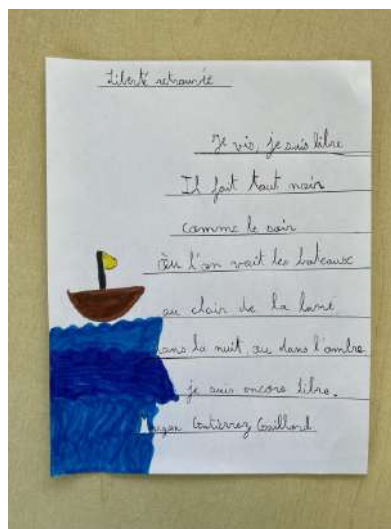 Liberté retrouvée
Je vis, je suis libre
Il fait tout noir
comme le soir
Où l'on voit les bateaux
au clair de la lune
dans la nuit, ou dans l'ombre
je suis encore libre.
Gutiérrez Gaillard